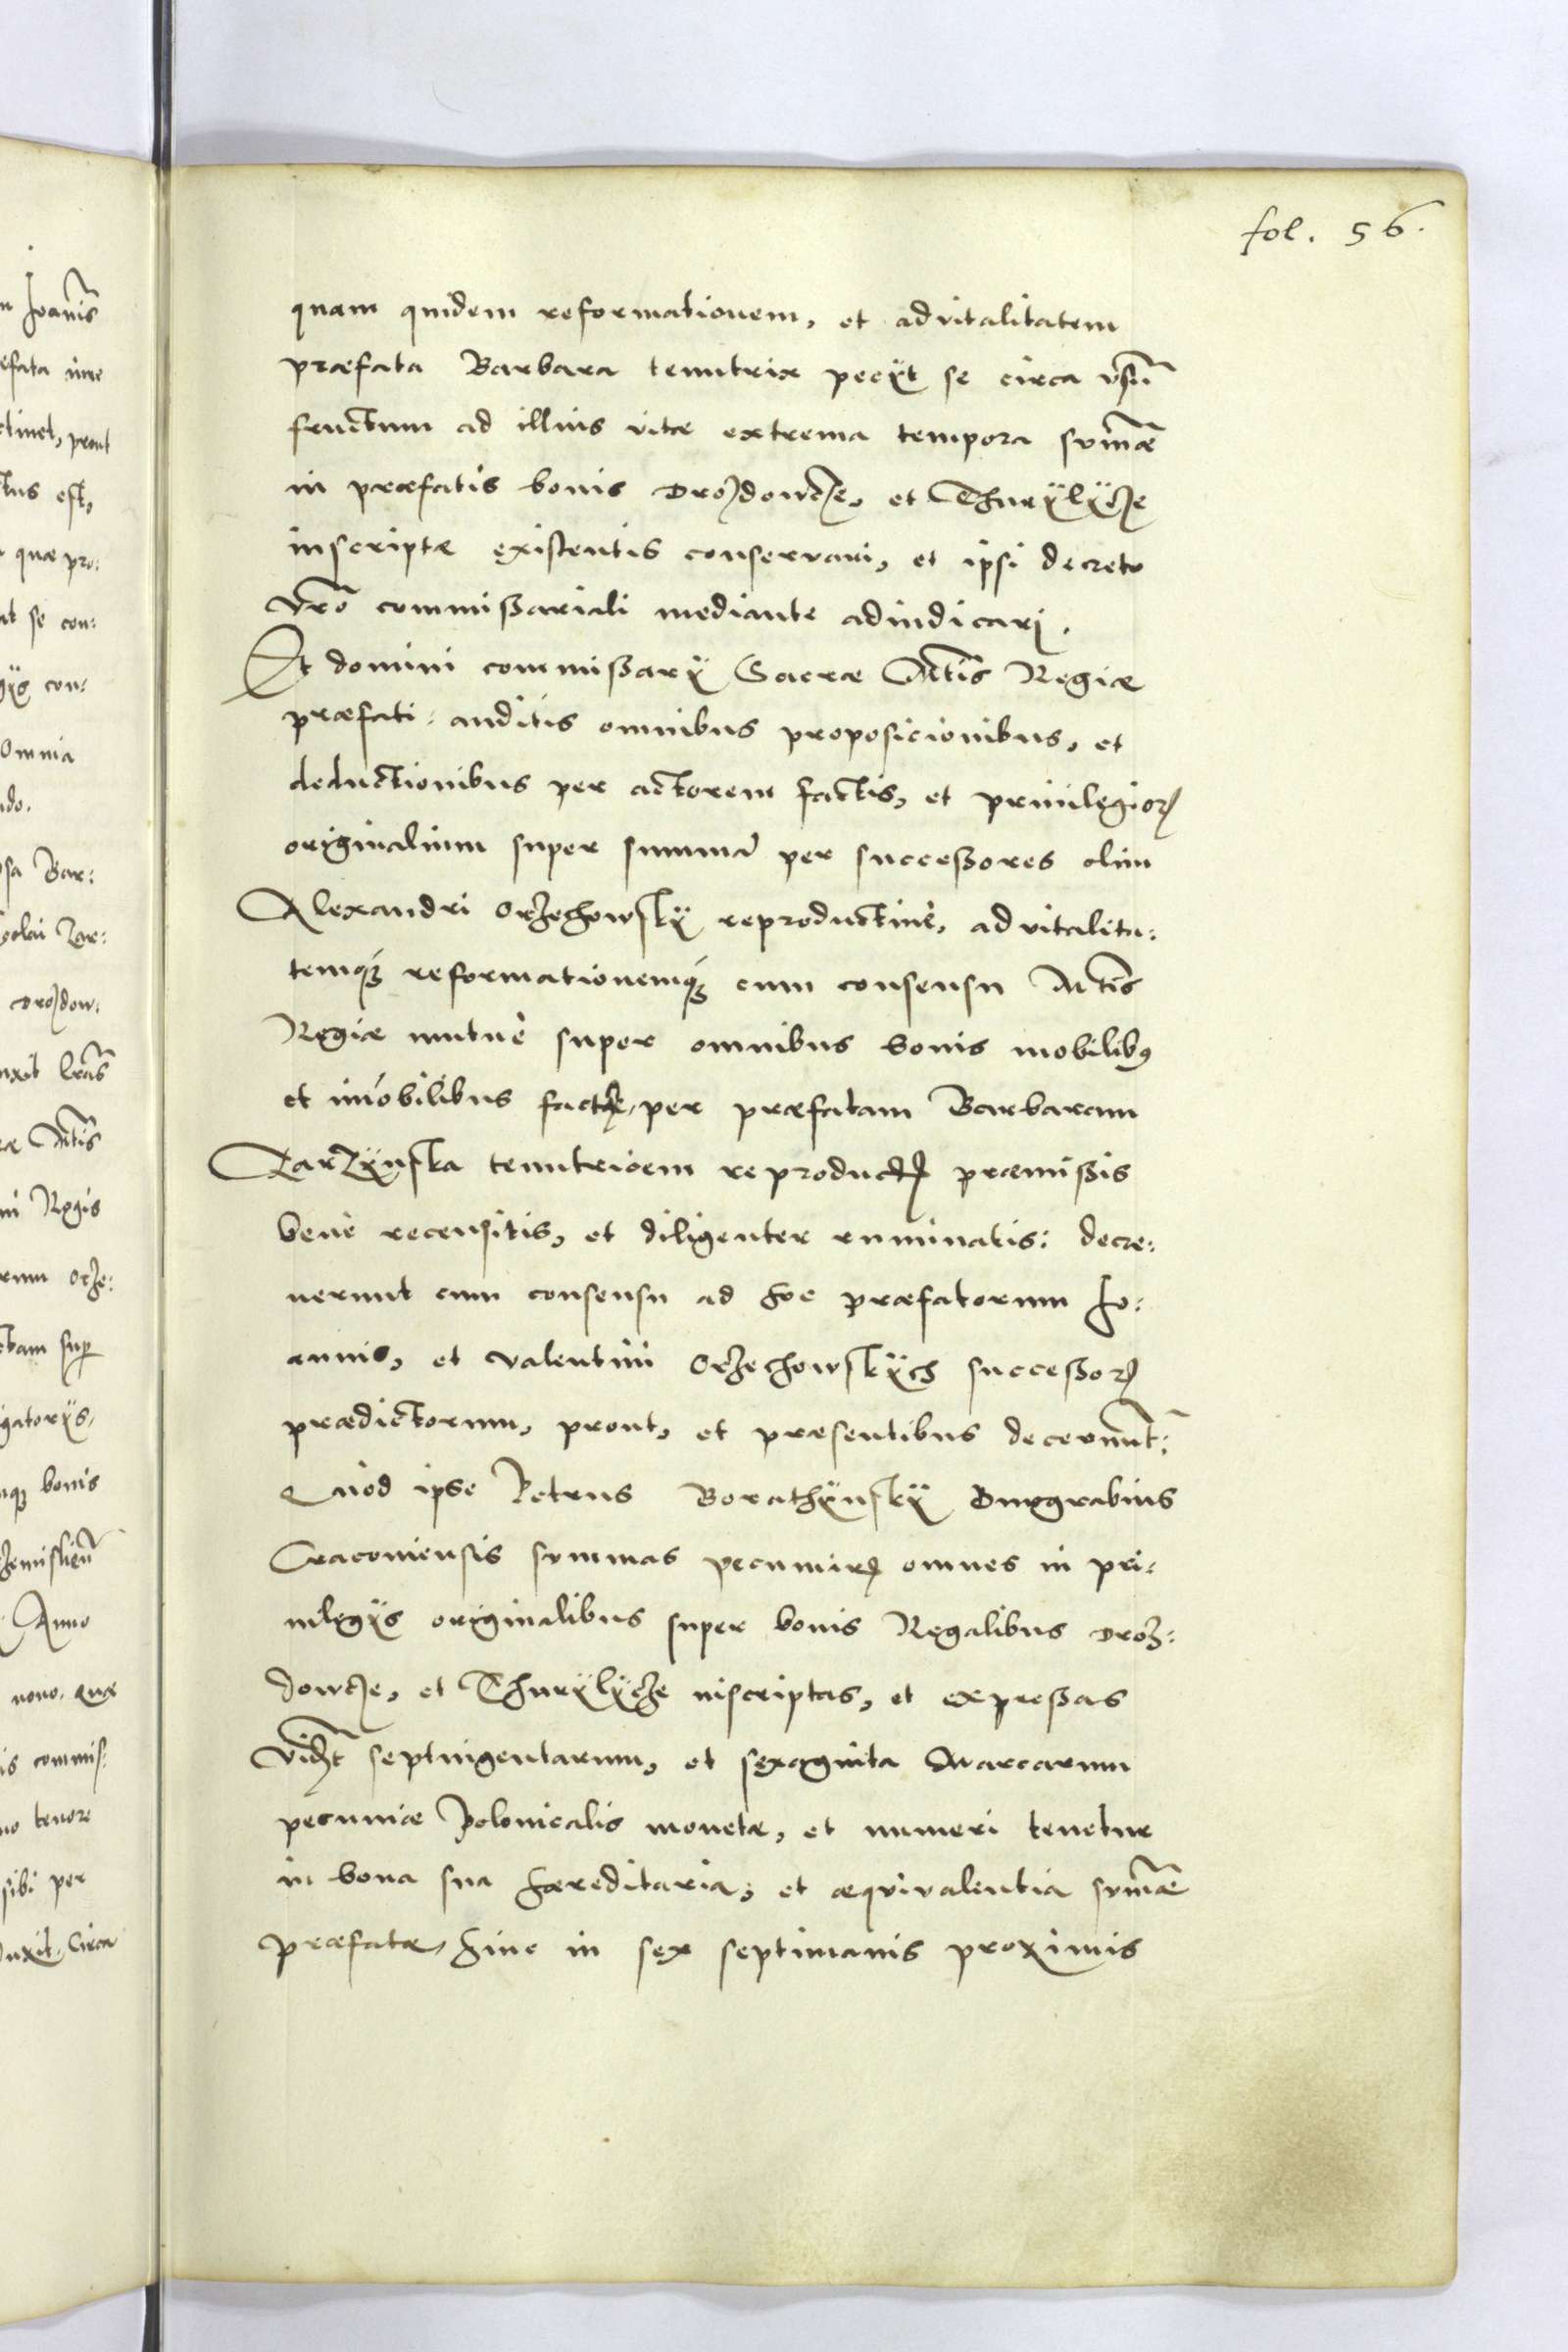 fol. 56.
quam quidem reformationem, et advitalitatem
præfata Barbara tenutrix pecÿt se circa vsũ
fructum ad illius vitæ extrema tempora sum̃æ
in præfatis bonis Drozdowcze, et Thurÿlÿcze
inscriptæ existentis conservari, et ipsi decreto
vr̃o commißariali mediante adiudicari.
Et domini commißarÿ Sacræ Mt̃is Regiæ
præfati auditis omnibus proposicionibus, et
deductionibus per actorem factis, et priuilegioꝝ
originalium super summã per succeßores olim
Alexandri Orzechowskÿ reproductiuè, advitalita:
temqꝫ reformationemqꝫ cum consensu Mt̃is
Regiæ mutuè super omnibus bonis mobilibꝰ
et im̃obilibus factæ, per præfatam Barbaram
Zarzÿnska tenutricem reproductꝭ præmißis
benè recensitis, et diligenter ruminatis: decre:
uerunt cum consensu ad hoc præfatorum Jo:
annis, et Valentini Orzechowskÿch succeßoꝝ
prædictorum, prout, et præsentibus decernunt:
Quòd ipse Petrus Borathÿnskÿ Burgrabius
Cracoviensis summas pecuniaꝝ omnes in pri:
uilegÿs originalibus super bonis Regalibus Droz:
dowcze, et Thurÿlÿcze inscriptas, et expreßas
vidꝫt septuigentarum, et sexaginta Marcarum
pecuniæ Polonicalis monetæ, et numeri tenetur
in bona sua hæreditaria, et æquivalentia sum̃æ
præfatæ, hinc in sex septimanis proximis
n Joañis
efata iure
etinet, prout
tus est,
quæ pro:
it se con:
gÿs con:
Omnia
ndo.
osa Bar:
colai Zar:
Drozdow:
uxit lr̃as
ræ Mt̃is
ni Regis
rum Orze:
ctam sup̲
gatorÿs,
mqꝫ bonis
Anno
nono. quæ
is commis:
no tenore
sibi per
duxit. Circa